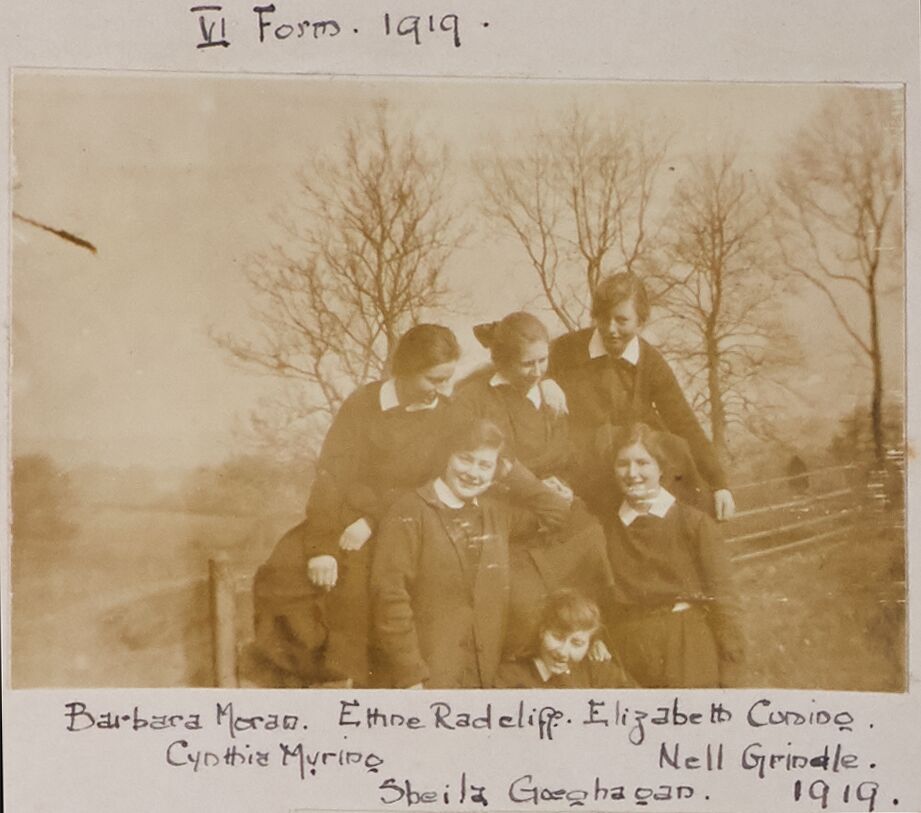 VI Form. 1919.
Barbara Moran. Ethne Radcliff. Elizabeth Cuning.
Cynthia Myring Nell Grindle.
Sheila Goeghagan. 1919.